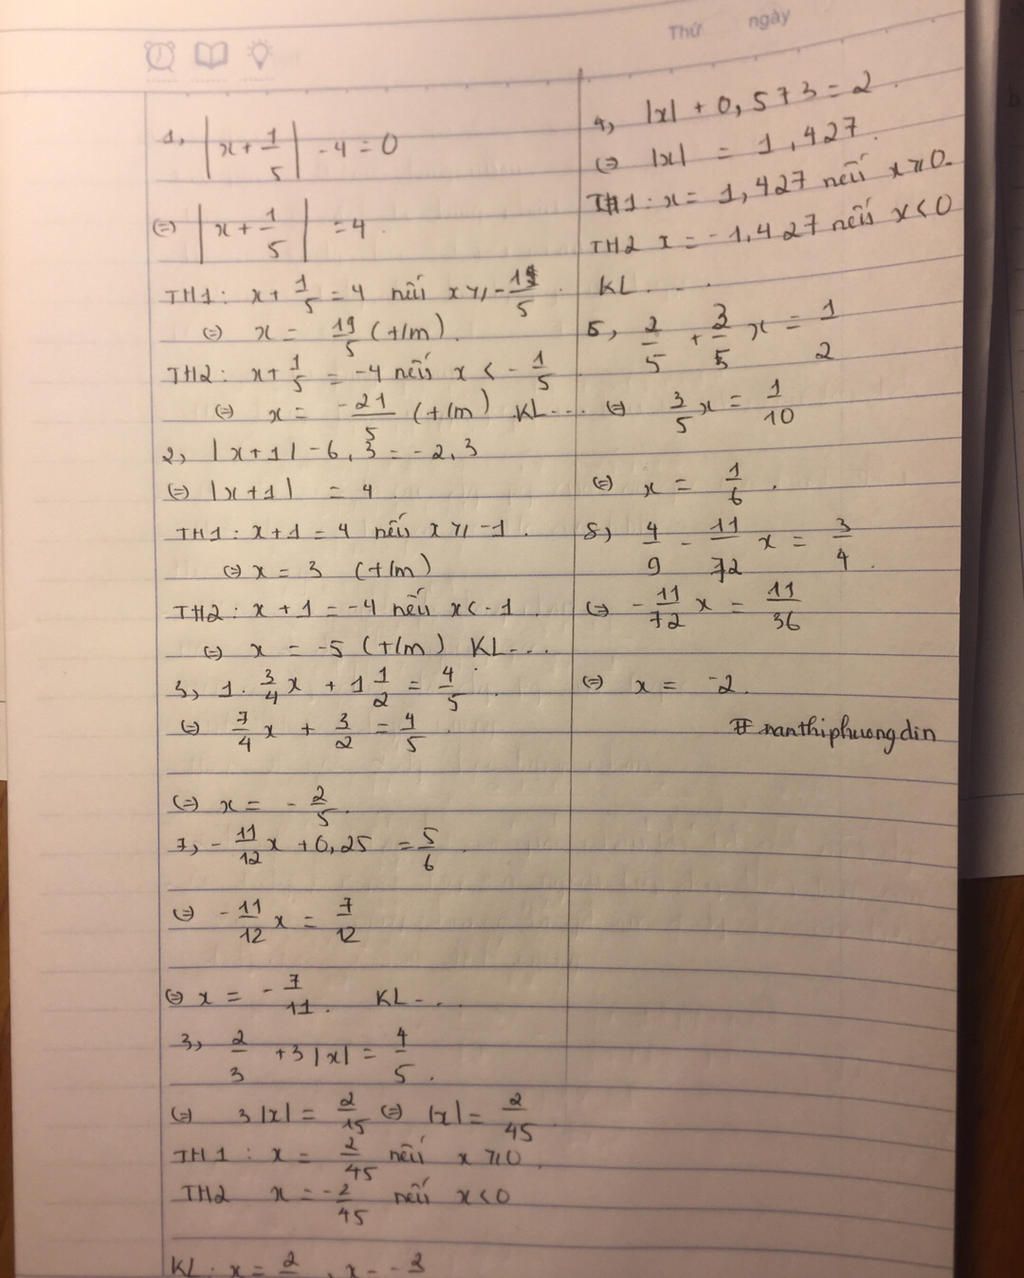 Thứ ngày
1, |x + 1/5| - 4 = 0
(=) |x + 1/5| = 4.
TH1: x + 1/5 = 4 nếu x ≥ -1/5.
(=) x = 19/5 (t/m).
TH2: x + 1/5 = -4 nếu x < -1/5
(=) x = -21/5 (t/m) KL...
2, |x+1| - 6,3 = -2,3
(=) |x+1| = 4.
TH1: x + 1 = 4 nếu x ≥ -1.
(=) x = 3 (t/m)
TH2: x + 1 = -4 nếu x < -1.
(=) x = -5 (t/m) KL...
3, 1.3/4 x + 1 1/2 = 4/5.
(=) 7/4 x + 3/2 = 4/5.
(=) x = -2/5.
7, -11/12 x + 0,25 = 5/6.
(=) -11/12 x = 7/12
(=) x = -7/11. KL...
3, 2/3 + 3|x| = 4/5.
(=) 3|x| = 2/15 (=) |x| = 2/45.
TH1: x = 2/45 nếu x ≥ 0.
TH2 x = -2/45 nếu x < 0
KL: x = 2
4, |x| + 0,573 = 2.
(=) |x| = 1,427.
TH1: x = 1,427 nếu x ≥ 0.
TH2 x = -1,427 nếu x < 0
KL....
5, 2/5 + 3/5 x = 1/2
(=) 3/5 x = 1/10
(=) x = 1/6.
8, 4/9 - 11/72 x = 3/4.
(=) -11/72 x = 11/36
(=) x = -2.